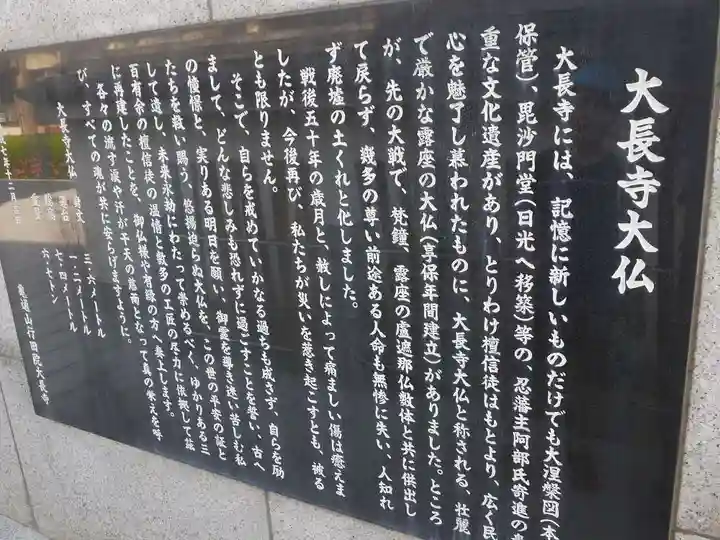 大長寺大仏
大長寺には、記憶に新しいものだけでも大涅槃図(本
保管)、毘沙門堂(日光へ移築)等の、忍藩主阿部氏寄進の貴
重な文化遺産があり、とりわけ檀信徒はもとより、広く民
心を魅了し慕われたものに、大長寺大仏と称される、壮麗
で厳かな露座の大仏(享保年間建立)がありました。ところ
が、先の大戦で、梵鐘、露座の盧遮那仏数体と共に供出し
て戻らず、幾多の尊い前途ある人命も無惨に失い、人知れ
ず廃墟の土くれと化しました。
戦後五十年の歳月と、赦しによって痛ましい傷は癒えま
したが、今後再び、私たちが災いを惹き起こすとも、被る
とも限りません。
そこで、自らを戒めていかなる過ちも成さず、自らを励
まして、どんな悲しみも恐れずに過ごすことを誓い、古へ
の憧憬と、実りある明日を願い、御霊を導き迷い苦しむ私
たちを救い賜う、悠揚迫らぬ大仏を、この世の平安の証と
して遺し、未来永劫にわたって崇めるべく、ゆかりある三
百有余の檀信徒の温情と数多の工匠の尽力に依拠して茲
に再建したことを、御仏様や有縁の方へ奏上します。
各々の流す涙や汗が干天の慈雨となって真の栄えを呼
び、すべての魂が共に安らげますように。
大長寺大仏
三・六メートル
一・二メートル
七・四メートル
六・七トン
七年十二月
亀通山行田院大長寺